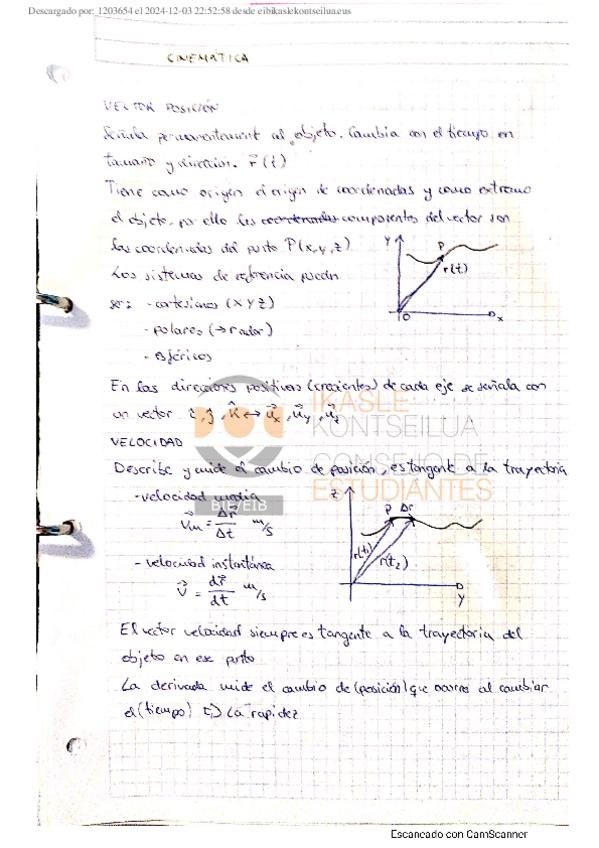 Descargado por: 1203654 el 2024-12-03 22:52:58 desde eibikaslekontseilua.eus
CINEMÁTICA
VECTOR POSICIÓN
Señala permanentement al objeto. Cambia con el tiempo en
tamaño y direccion. r⃗(t)
Tiene como origen el origen de coordenadas y como extremo
el objeto, por ello las coordenadas componentes del vector son
las coordenadas del punto P(x,y,z)
Los sistemas de referencia pueden
ser: - cartesianos (XYZ)
- polares (→ radar)
- esféricos
Y
P
r(t)
O
x
En las direcciones positivas (crecientes) de cada eje se señala con
un vector î, ĵ, k̂ ↔ u⃗x, u⃗y, u⃗z
IKASLE
KONTSEILUA
CONSEJO DE
ESTUDIANTES
BIE/EIB
VELOCIDAD
Describe y mide el cambio de posición, es tangente a la trayectoria
- velocidad media
V⃗m = Δr⃗/Δt m/s
- velocidad instantánea
V⃗ = dr⃗/dt m/s
z
P Δr
r(t1)
r(t2)
Y
El vector velocidad siempre es tangente a la trayectoria del
objeto en ese punto
La derivada mide el cambio de (posición) que ocurre al cambiar
el (tiempo) ↳ La rapidez
Escaneado con CamScanner